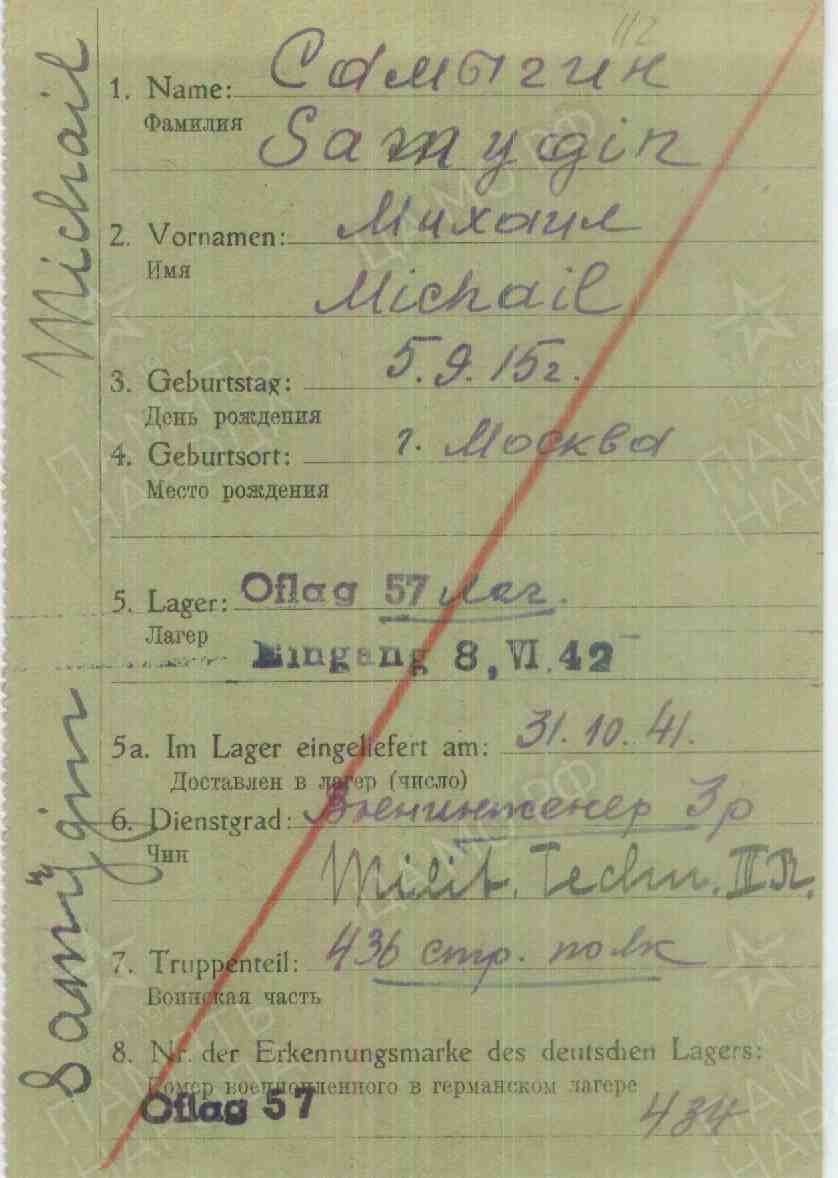 112
1. Name: Самыгин
Фамилия
Samygin
2. Vornamen: Михаил
Имя
Michail
3. Geburtstag: 5.9.15г.
День рождения
4. Geburtsort: г. Москва
Место рождения
5. Lager: Oflag 57 лаг.
Лагер
Eingang 8, VI. 42
5a. Im Lager eingeliefert am: 31.10.41.
Доставлен в лагер (число)
6. Dienstgrad: Воен.инженер 3р
Чин
Milit. Techn. III R.
7. Truppenteil: 436 стр. полк
Воинская часть
8. Nr. der Erkennungsmarke des deutschen Lagers:
Номер военнопленного в германском лагере
Oflag 57 434
Samÿgin Michail